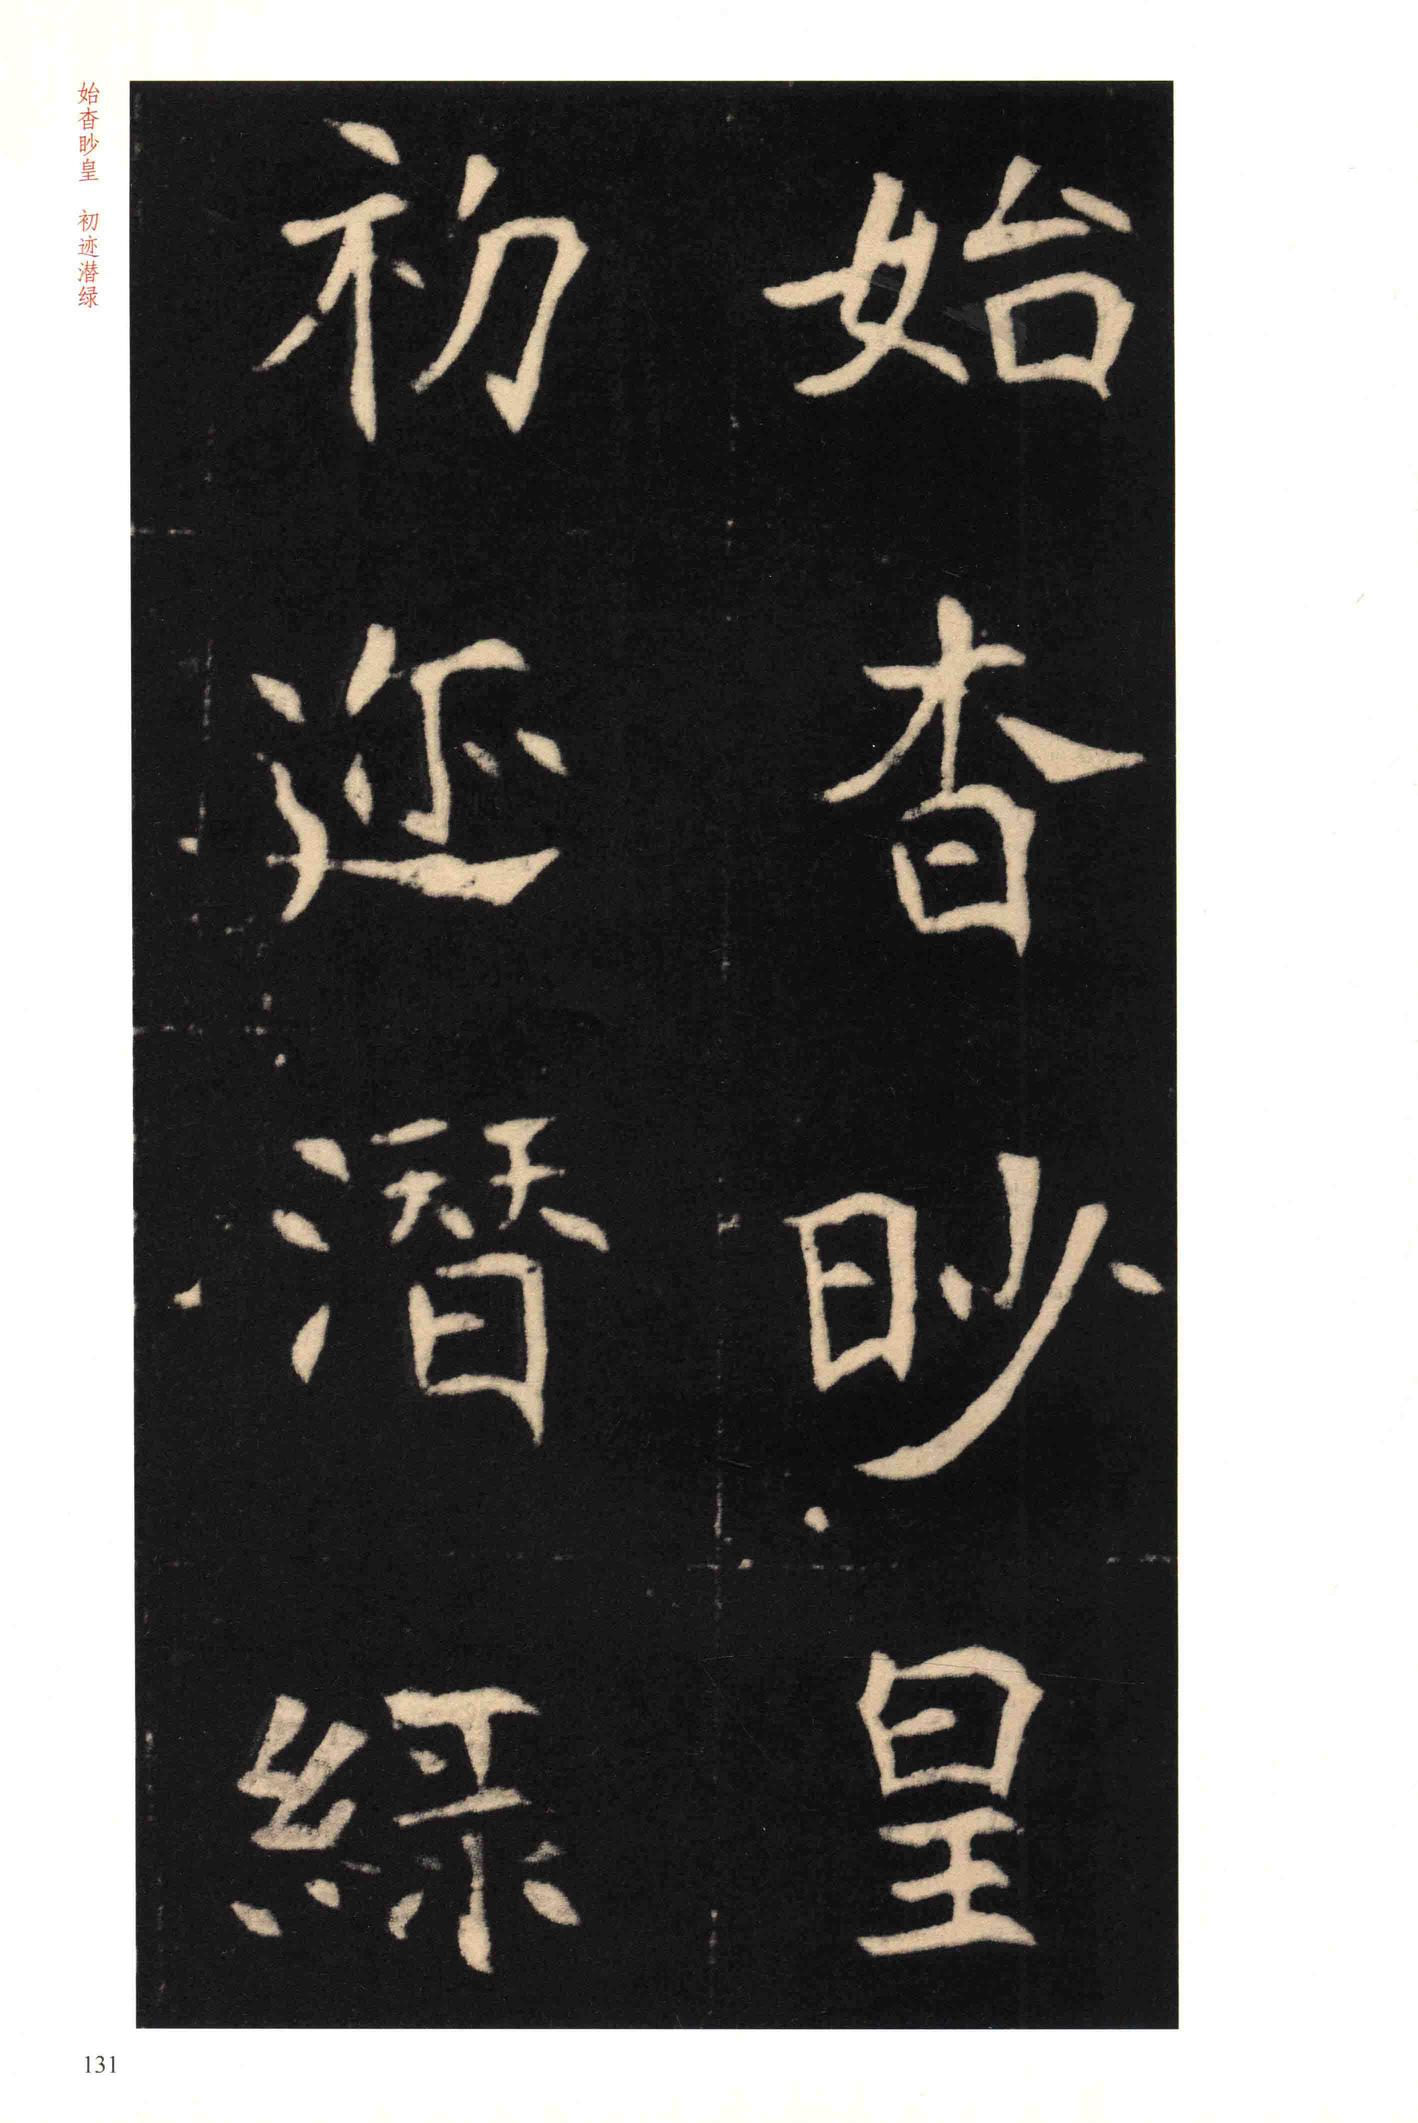 始杳眇皇
初迹潛綠
始杳眇皇　初迹潜绿
131